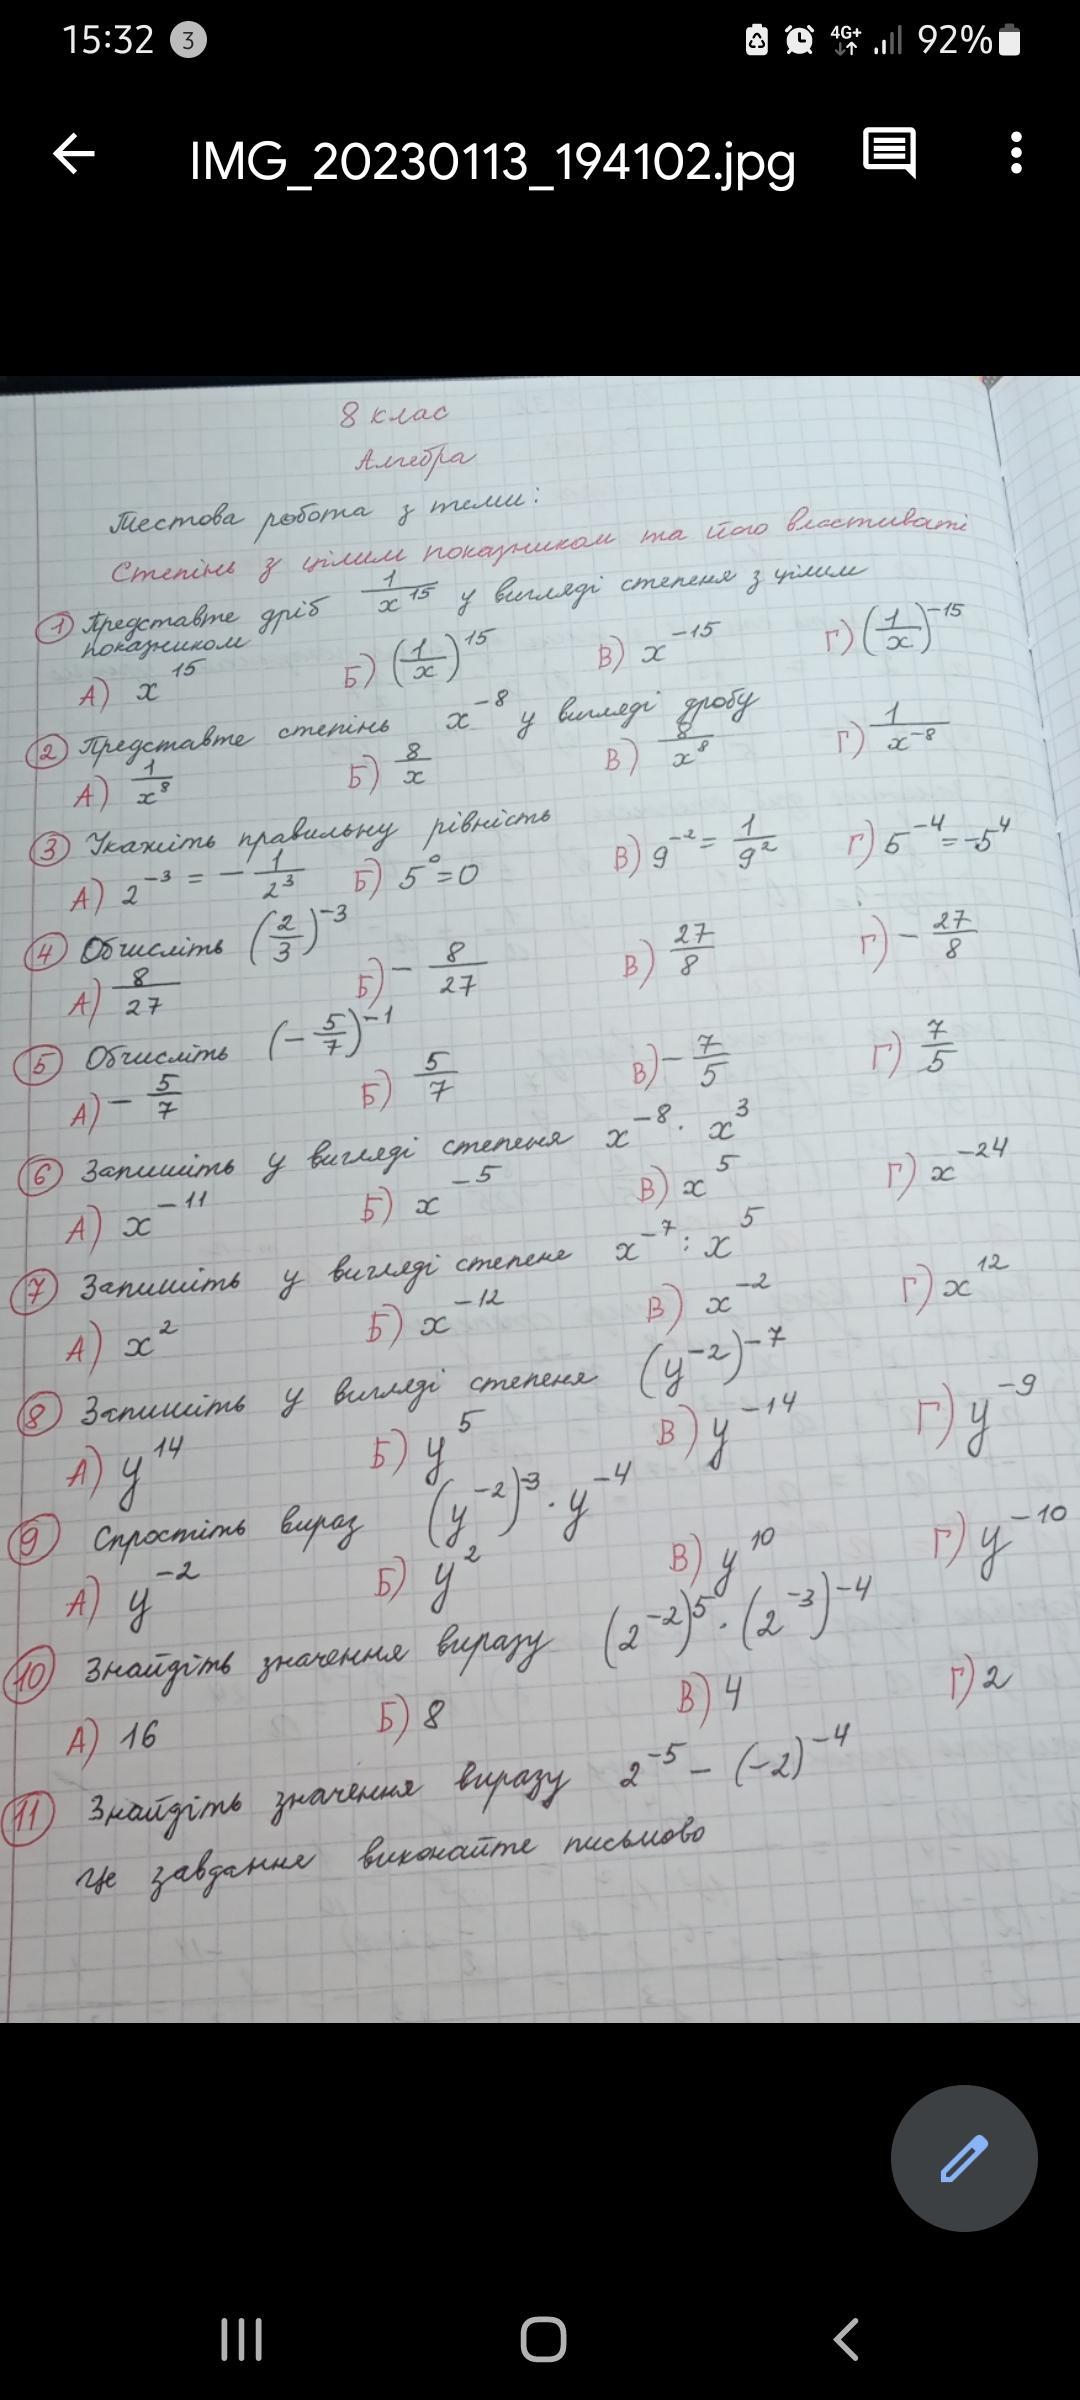 15:32 3 4G+ 92%
IMG_20230113_194102.jpg
8 клас
Алгебра
Тестова робота з теми:
Степінь з цілим показником та його властиваті
1 Представте дріб 1/x^15 у вигляді степеня з цілим
показником
А) x^15 Б) (1/x)^15 В) x^-15 Г) (1/x)^-15
2 Представте степінь x^-8 у вигляді дробу
А) 1/x^8 Б) 8/x В) 8/x^8 Г) 1/x^-8
3 Укажіть правильну рівність
А) 2^-3 = -1/2^3 Б) 5^0=0 В) 9^-2 = 1/9^2 Г) 5^-4 = -5^4
4 Обчисліть (2/3)^-3
А) 8/27 Б) -8/27 В) 27/8 Г) -27/8
5 Обчисліть (-5/7)^-1
А) -5/7 Б) 5/7 В) -7/5 Г) 7/5
6 Запишіть у вигляді степеня x^-8 · x^3
А) x^-11 Б) x^-5 В) x^5 Г) x^-24
7 Запишіть у вигляді степене x^-7 : x^5
А) x^2 Б) x^-12 В) x^-2 Г) x^12
8 Запишіть у вигляді степеня (y^-2)^-7
А) y^14 Б) y^5 В) y^-14 Г) y^-9
9 Спростіть вираз (y^-2)^-3 · y^-4
А) y^-2 Б) y^2 В) y^10 Г) y^-10
10 Знайдіть значення виразу (2^-2)^5 · (2^-3)^-4
А) 16 Б) 8 В) 4 Г) 2
11 Знайдіть значення виразу 2^-5 - (-2)^-4
Це завдання виконайте письмово